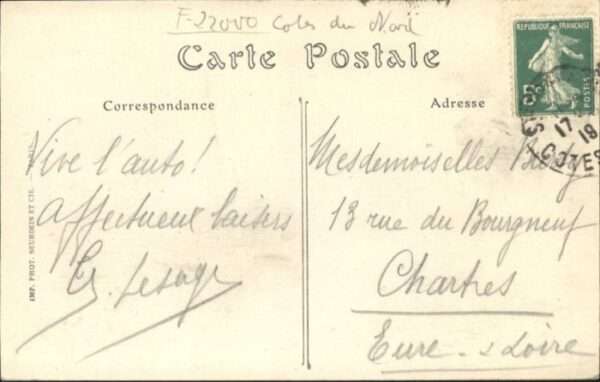 F-22000 Cotes du Nord
Carte Postale
REPUBLIQUE FRANÇAISE
5c
POSTES
17
19
COTES
Correspondance
Adresse
Vive l'auto!
affectueux baisers
Lesage
Mesdemoiselles
13 rue du Bourgneuf
Chartres
Eure-&-Loire
IMP. PHOT. NEURDEIN ET CIE. PARIS.